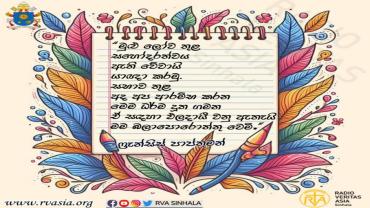 "මුළු ලෝව තුළ
සහෝදරත්වය
ඇති වේවායි
යාඥා කරමු.
සභාව තුළ
අද අප ආරම්භ කරන
මෙම ධර්ම දූත ගමන
ඒ සඳහා ඵලදායී වනු ඇතැයි
මම බලාපොරොත්තු වෙමි."
ෆ්‍රැන්සිස් පාප්තුමන්
www.rvasia.org
RVA SINHALA
RADIO
VERITAS
ASIA
Sinhala